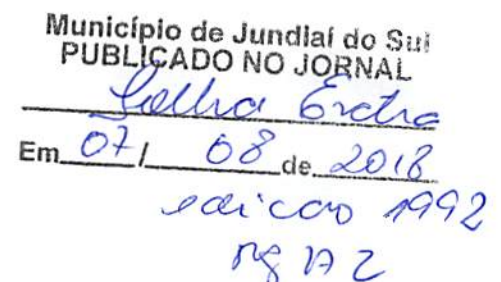 Município de Jundiaí do Sul
PUBLICADO NO JORNAL
Folha Extra
Em 07/ 08 de 2018
edicao 1992
pg A2